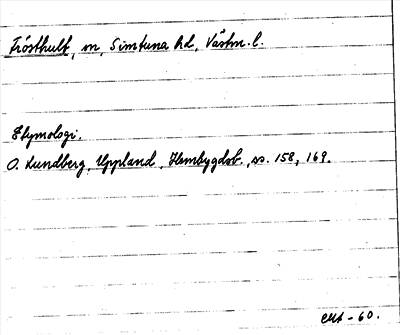 Frösthult, sn, Simtuna hd, Västm. l.
Etymologi.
O. Lundberg, Uppland, Hembygdsb., ss. 158, 169.
-60.